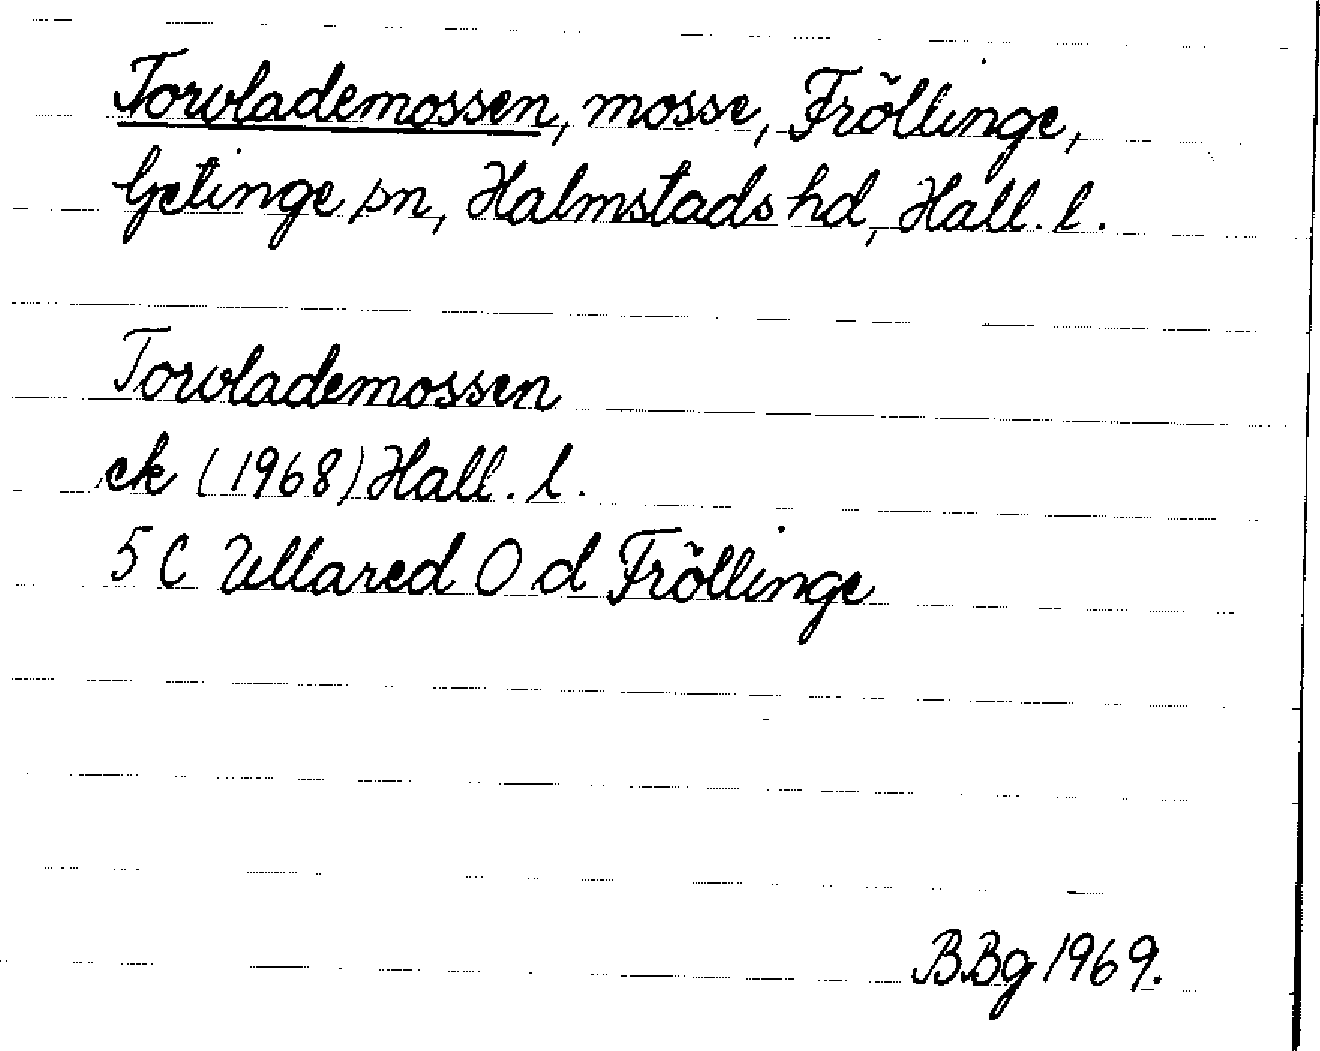 Torvlademossen, mosse, Fröllinge,
Getinge sn, Halmstads hd, Hall. l.
Torvlademossen
ek (1968) Hall. l.
5 C Ullared O d Fröllinge
BBg 1969.